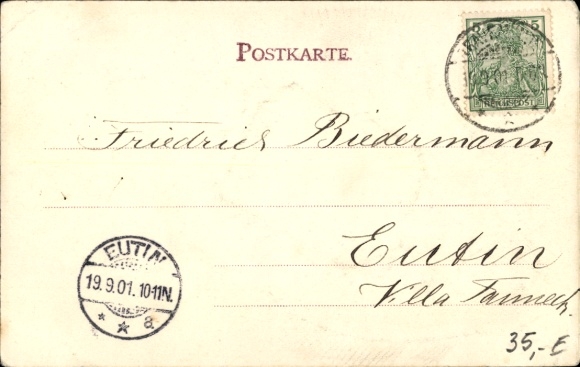 POSTKARTE.
5 5
REICHSPOST
Friedrich Biedermann
Eutin
Villa
EUTIN
19.9.01.10-11N.
* * a
35,- E